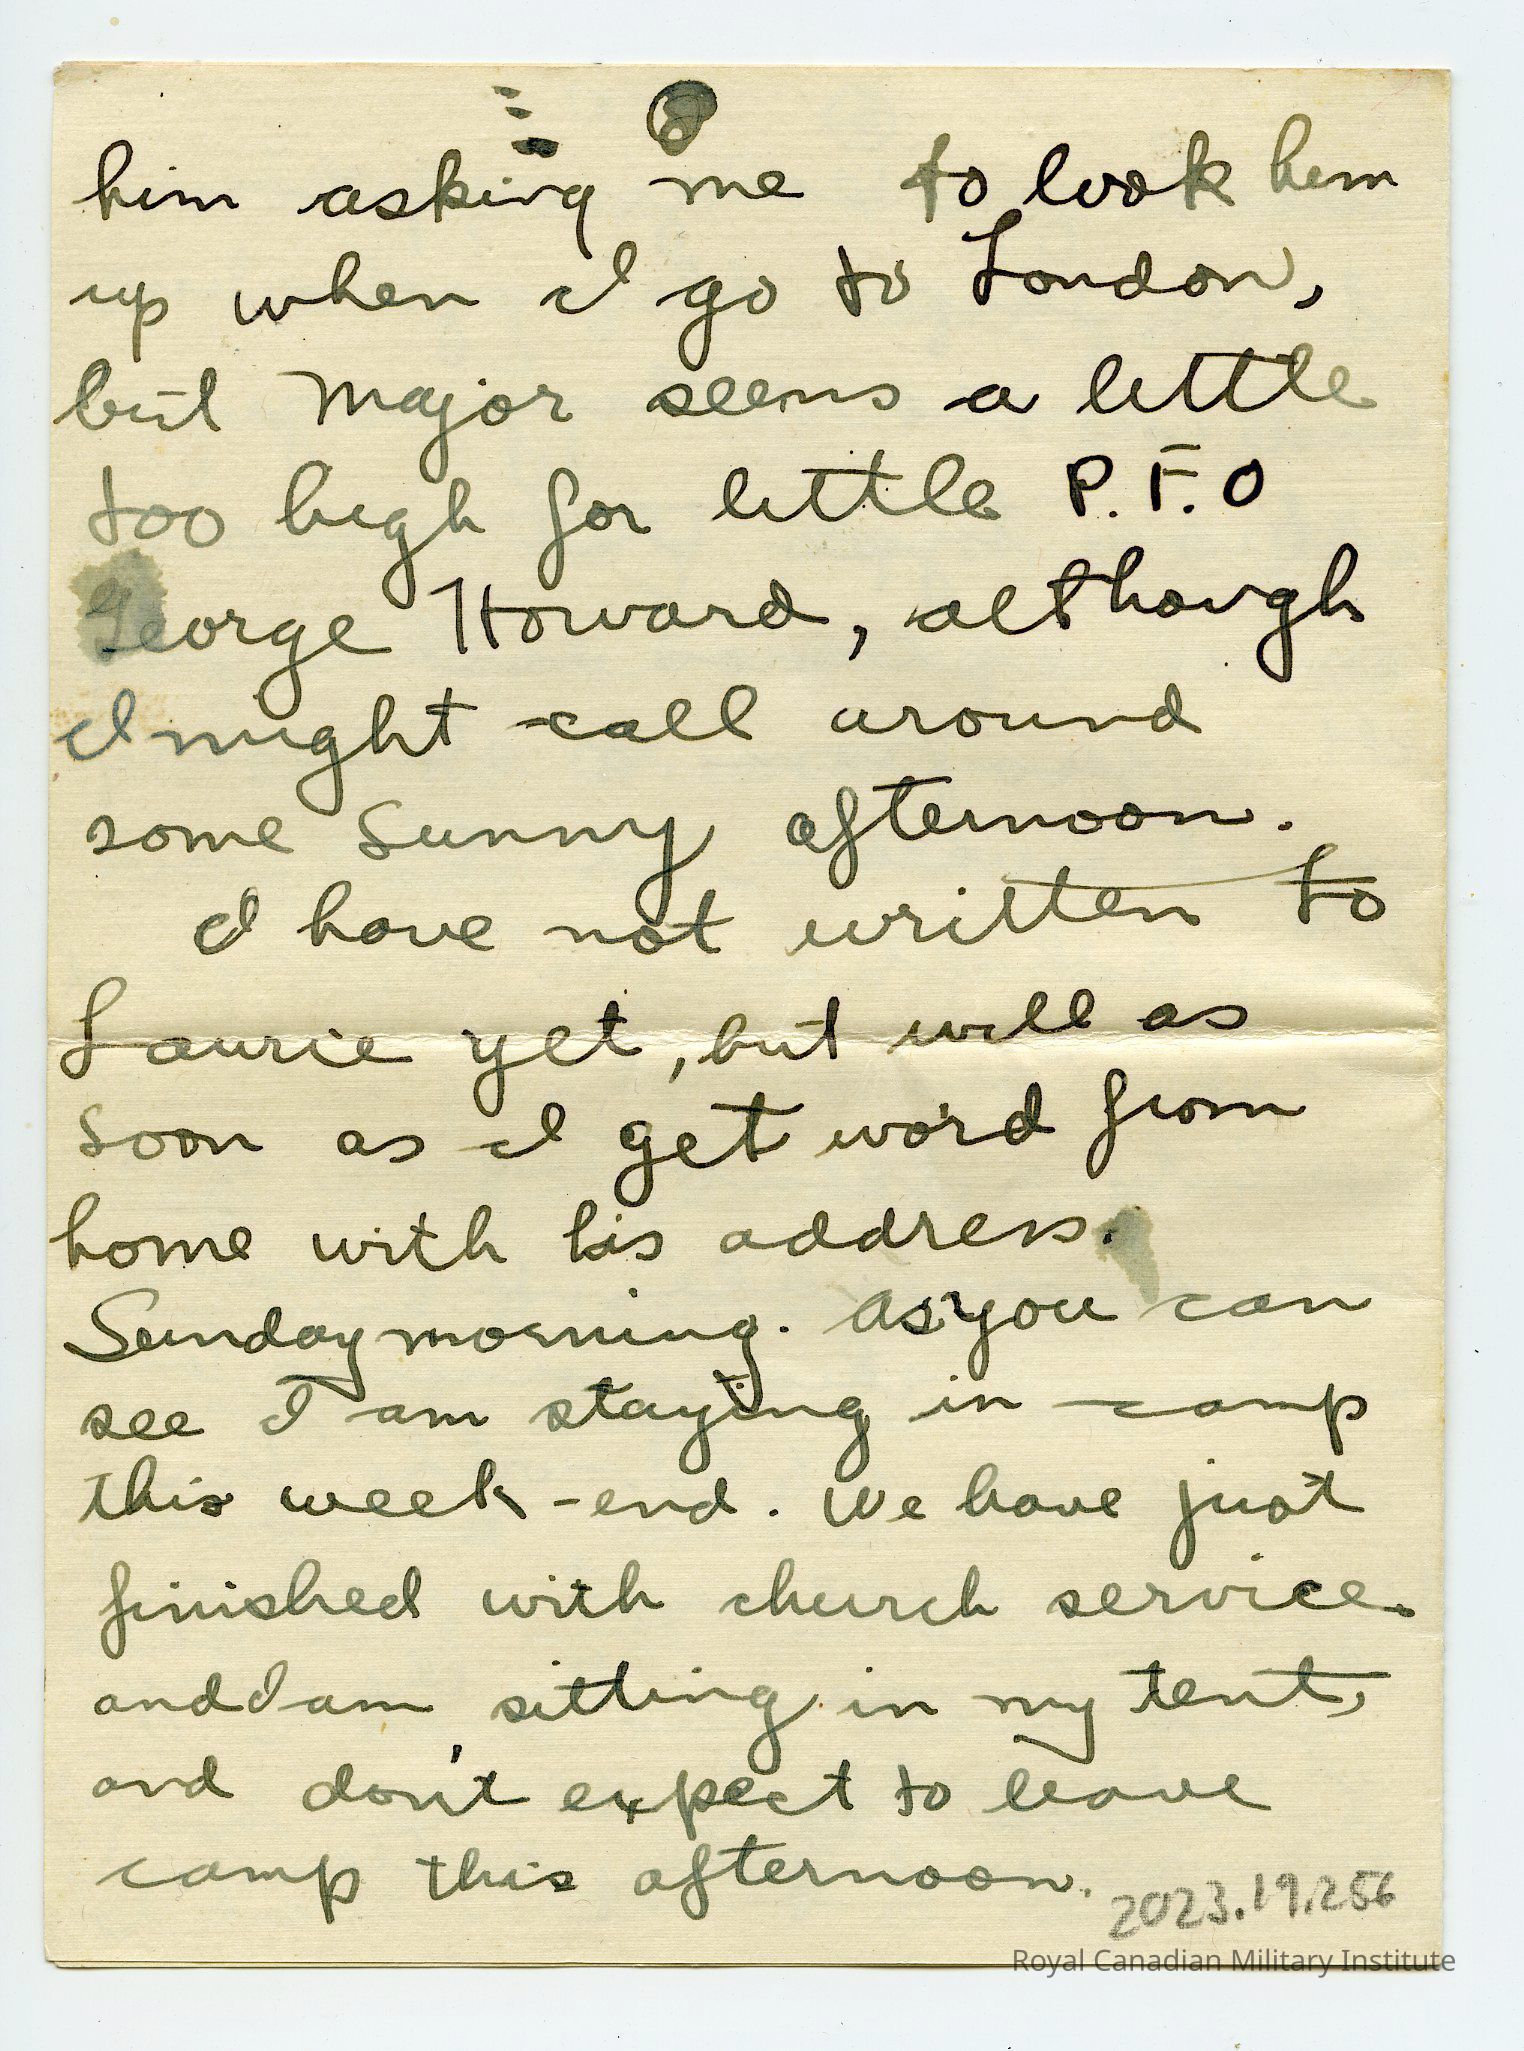 6
him asking me to look him
up when I go to London,
but Major seems a little
too high for little P.F.O
George Howard, although
I might call around
some sunny afternoon.
I have not written to
Laurie yet, but will as
soon as I get word from
home with his address.
Sunday morning. As you can
see I am staying in camp
this week-end. We have just
finished with church service.
and I am sitting in my tent,
and don't expect to leave
camp this afternoon.
2023.19.256
Royal Canadian Military Institute